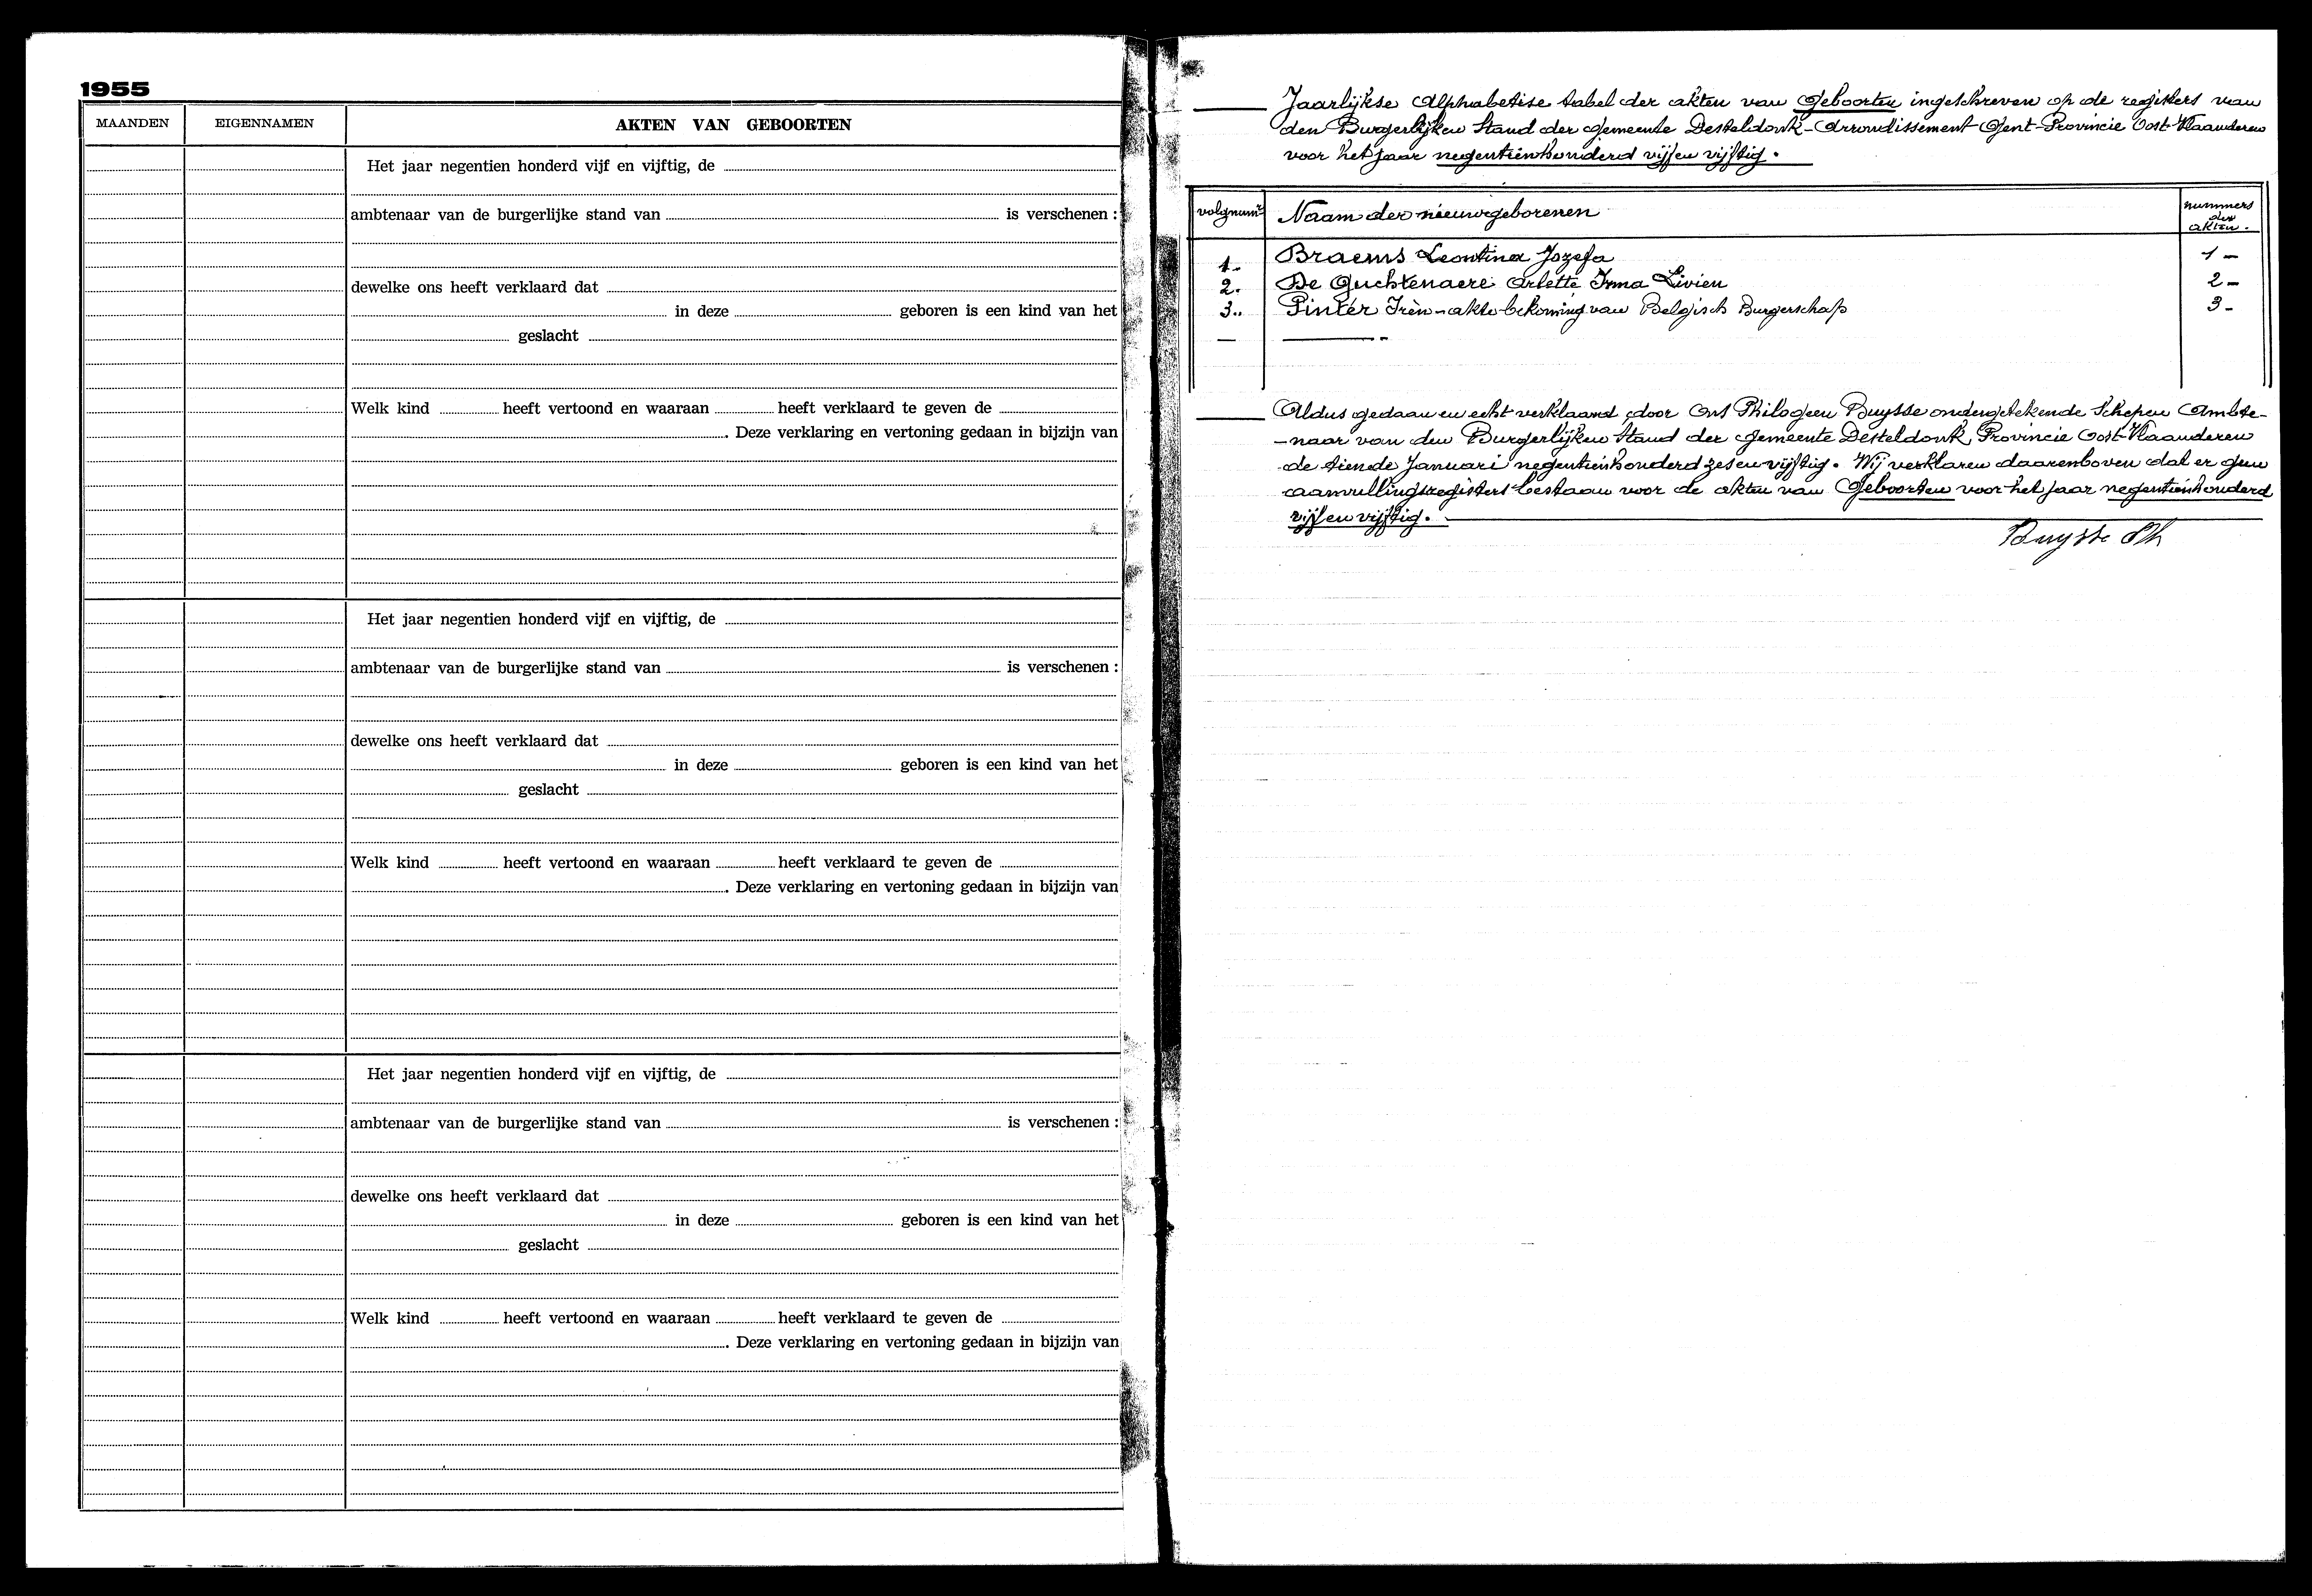 1955
MAANDEN EIGENNAMEN AKTEN VAN GEBOORTEN
Het jaar negentien honderd vijf en vijftig, de
ambtenaar van de burgerlijke stand van is verschenen :
dewelke ons heeft verklaard dat
in deze geboren is een kind van het
geslacht
Welk kind heeft vertoond en waaraan heeft verklaard te geven de
. Deze verklaring en vertoning gedaan in bijzijn van
Het jaar negentien honderd vijf en vijftig, de
ambtenaar van de burgerlijke stand van is verschenen :
dewelke ons heeft verklaard dat
in deze geboren is een kind van het
geslacht
Welk kind heeft vertoond en waaraan heeft verklaard te geven de
. Deze verklaring en vertoning gedaan in bijzijn van
Het jaar negentien honderd vijf en vijftig, de
ambtenaar van de burgerlijke stand van is verschenen :
dewelke ons heeft verklaard dat
in deze geboren is een kind van het
geslacht
Welk kind heeft vertoond en waaraan heeft verklaard te geven de
. Deze verklaring en vertoning gedaan in bijzijn van
Jaarlijkse Alphabetise tabel der akten van Geboorten ingeschreven op de registers van
den Burgerlijken Stand der gemeente Desteldonk - Arrondissement Gent - Provincie Oost-Vlaanderen
voor het jaar negentienhonderd vijf en vijftig.
volgnumr Naam der nieuwgeborenen nummers
der
akten.
1. Braems Leontina Jozefa 1 -
2. De Guchtenaere Arlette Irma Livien 2 -
3. Pintér Irèn - akte bekoming van Belgisch Burgerschap 3 -
Aldus gedaan en echt verklaard door Ons Philogeen Buysse ondergetekende Schepen Ambte-
-naar van den Burgerlijken Stand der gemeente Desteldonk, Provincie Oost-Vlaanderen
de tiende Januari negentienhonderd zes en vijftig. Wij verklaren daarenboven dat er geen
aanvullingsregisters bestaan voor de akten van Geboorten voor het jaar negentienhonderd
vijf en vijftig.
Buysse Ph